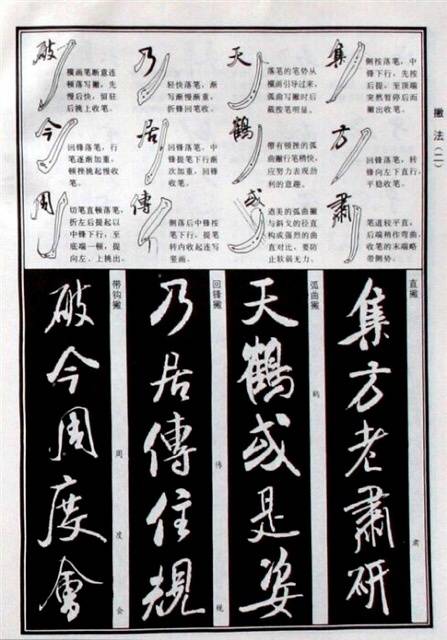 撇法（二）
集
侧按落笔，中
锋下行，先按
后提，至顶端
突然暂停后而
撇出收笔。
方
回锋落笔，转
锋向左下直行，
平稳收笔。
肃
笔道较平直，
后端稍作弯曲，
收笔的末端略
带侧势。
天
落笔的笔势从
横画引导过来，
弧曲写撇时后
藏按笔明显。
鹤
带有顿挫的弧
曲撇行笔稍快，
应努力表现劲
利的意趣。
或
遒美的弧曲撇
与斜戈的径直
构成强烈的曲
直对比，要防
止软弱无力。
乃
轻快落笔，渐
写渐慢渐重，
折锋回笔收。
居
回锋落笔，中
锋提笔下行渐
次加重，回锋
收笔。
傳
侧落后中锋按
笔下行，提笔
转向收起连写
竖画。
破
横画笔断意连
顿落写撇，先
慢后快，留驻
后挑上收笔。
今
回锋落笔，行
笔逐渐加重，
顿挫挑起慢收
笔。
周
切笔直顿落笔，
折左后提起以
中锋下行，至
底端一顿，提
向左、上挑出。
直撇
集方老肅研
肃
弧曲撇
天鶴或是姿
鹤
回锋撇
乃居傳住規
传
规
带钩撇
破今周度會
周
度
会